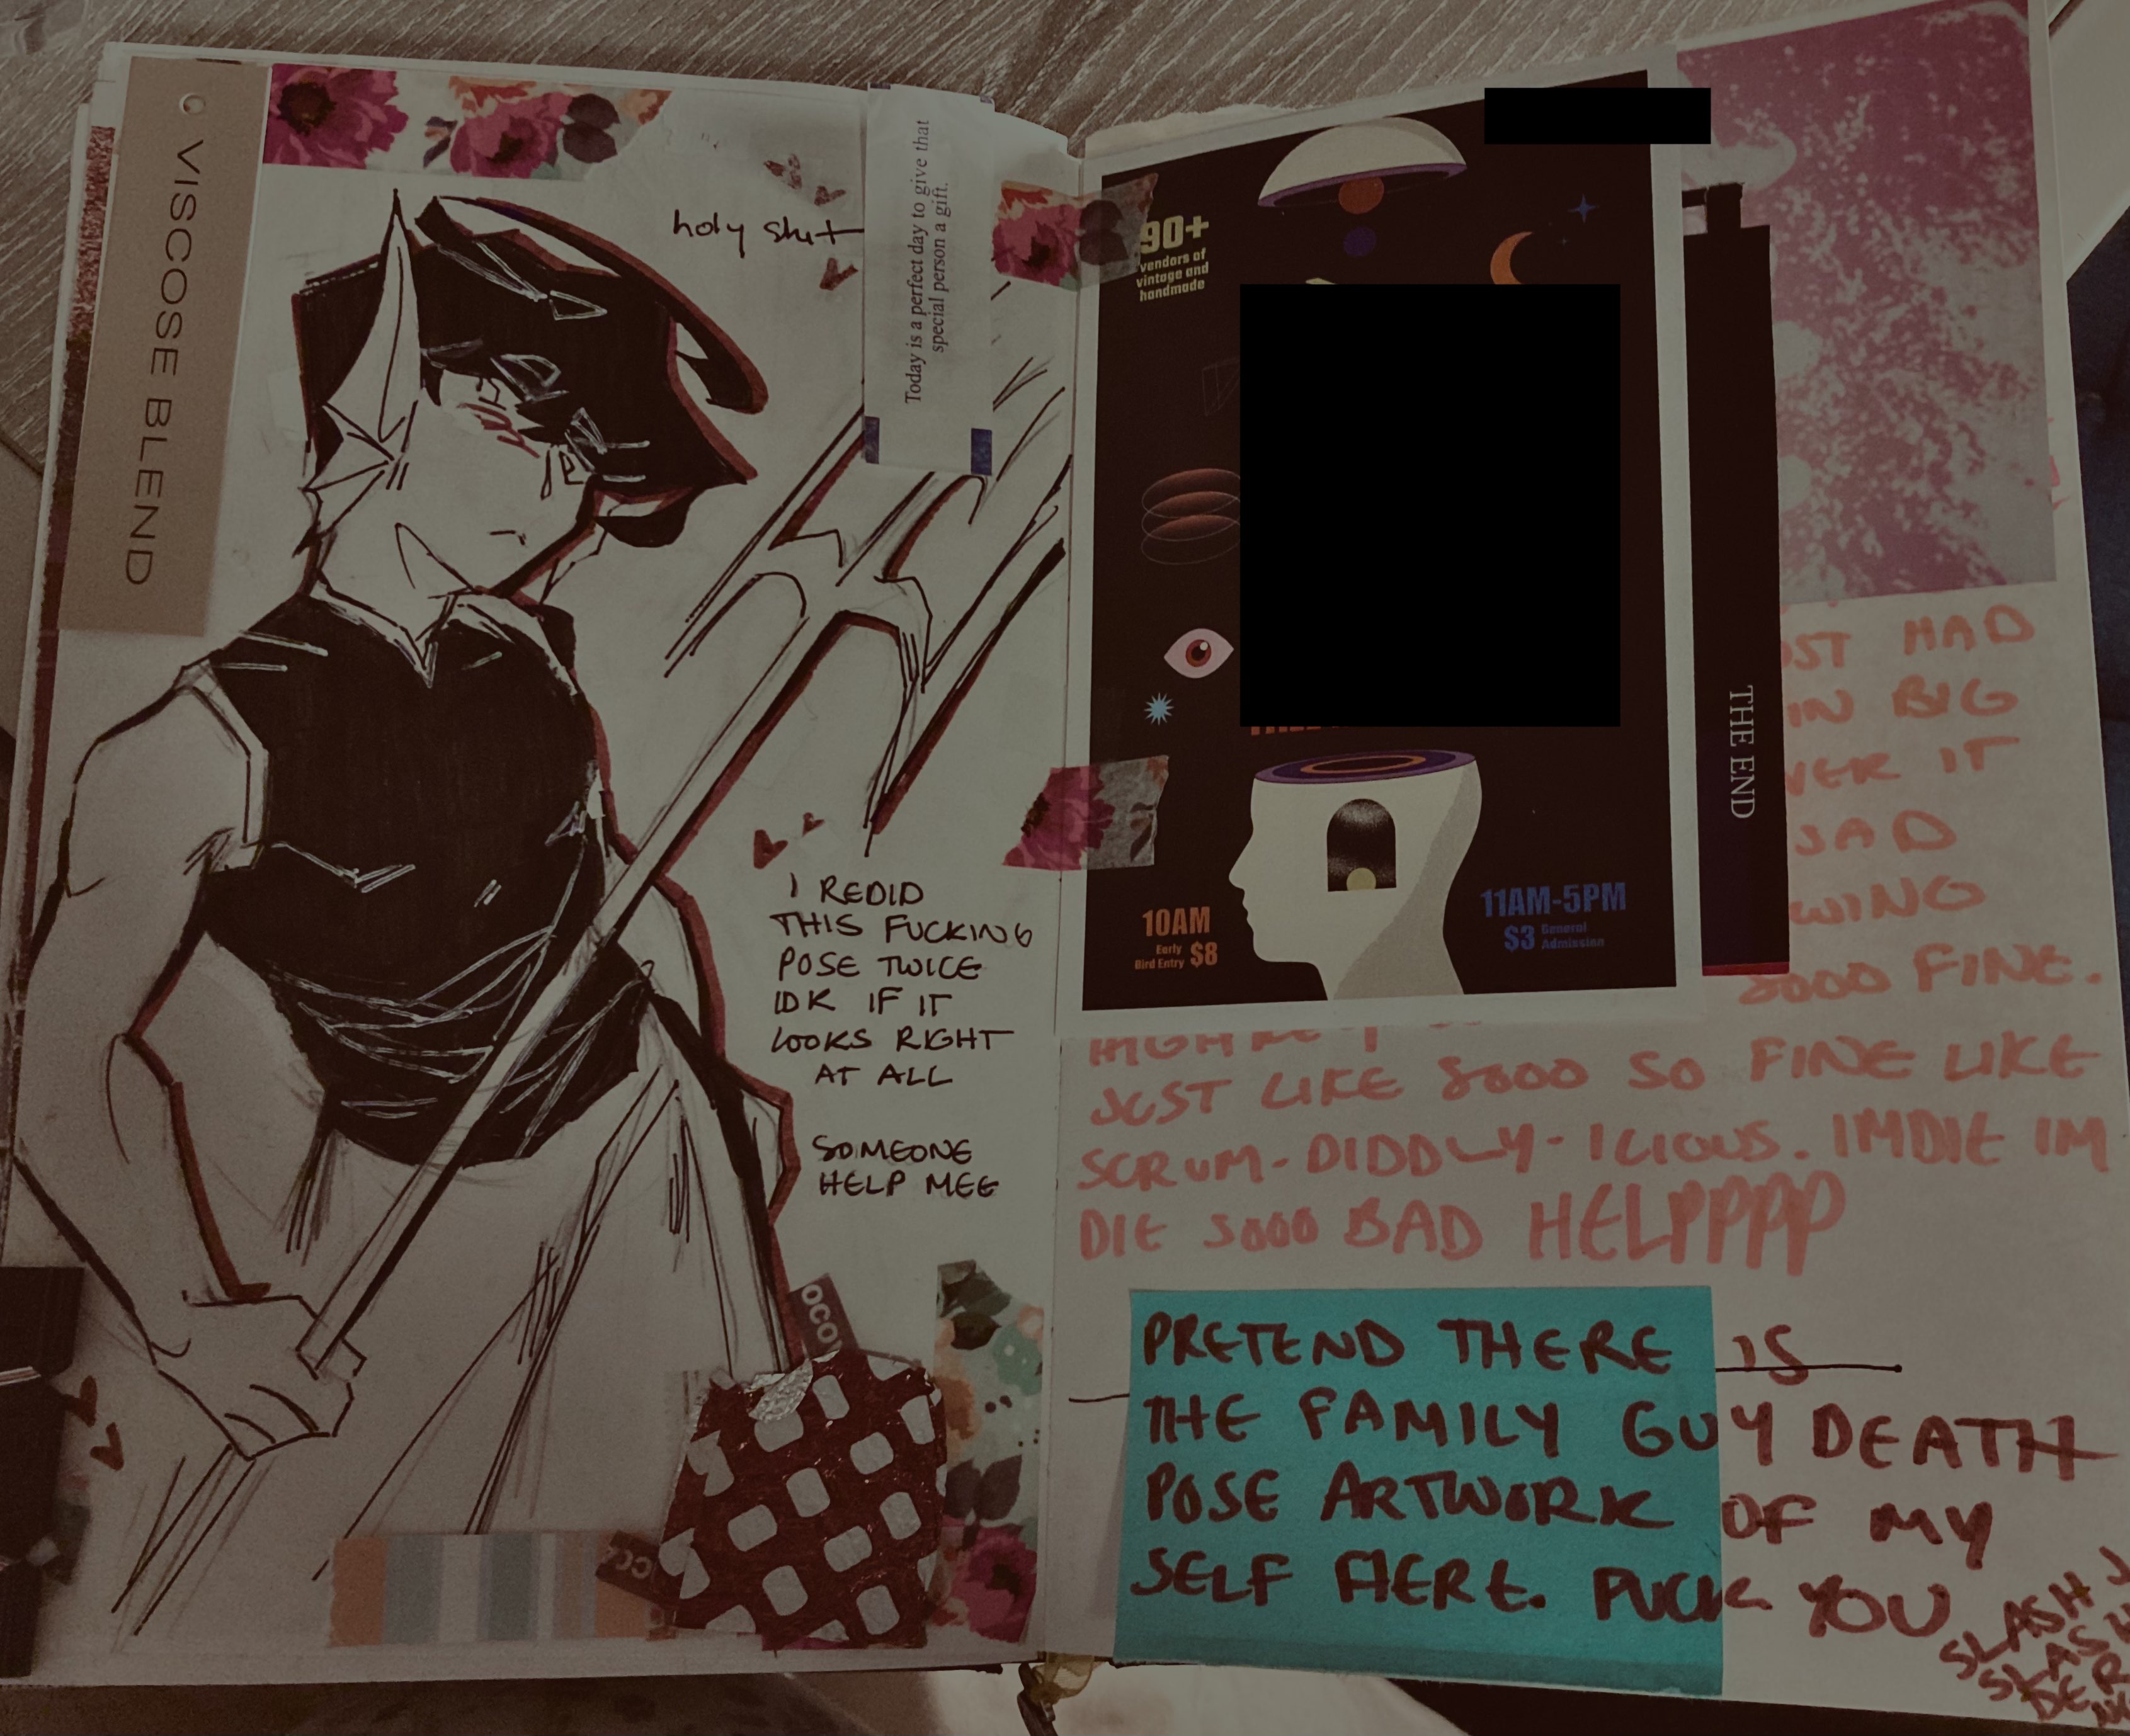 VISCOSE BLEND
holy shit
Today is a perfect day to give that
special person a gift.
I REDID
THIS FUCKING
POSE TWICE
IDK IF IT
LOOKS RIGHT
AT ALL
SOMEONE
HELP MEE
OCO
90+
vendors of
vintage and
handmade
10AM
Early
Bird Entry $8
11AM-5PM
$3 General
Admission
THE END
HAD
IN BIG
IT
SAD
SOOO FINE.
JUST LIKE SOOO SO FINE LIKE
SCRUM-DIDDLY-ICIOUS. IMDIE IM
DIE SOOO BAD HELPPPP
PRETEND THERE IS
THE FAMILY GUY DEATH
POSE ARTWORK OF MY
SELF HERE. FUCK YOU
SLASH J